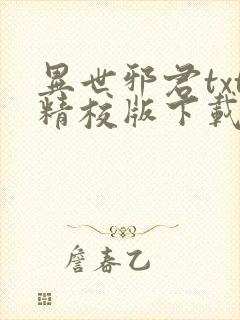 異世邪君txt
精校版下載
詹春乙